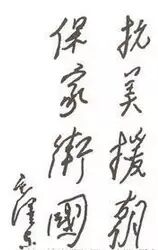 抗美援朝
保家衛國
毛澤東